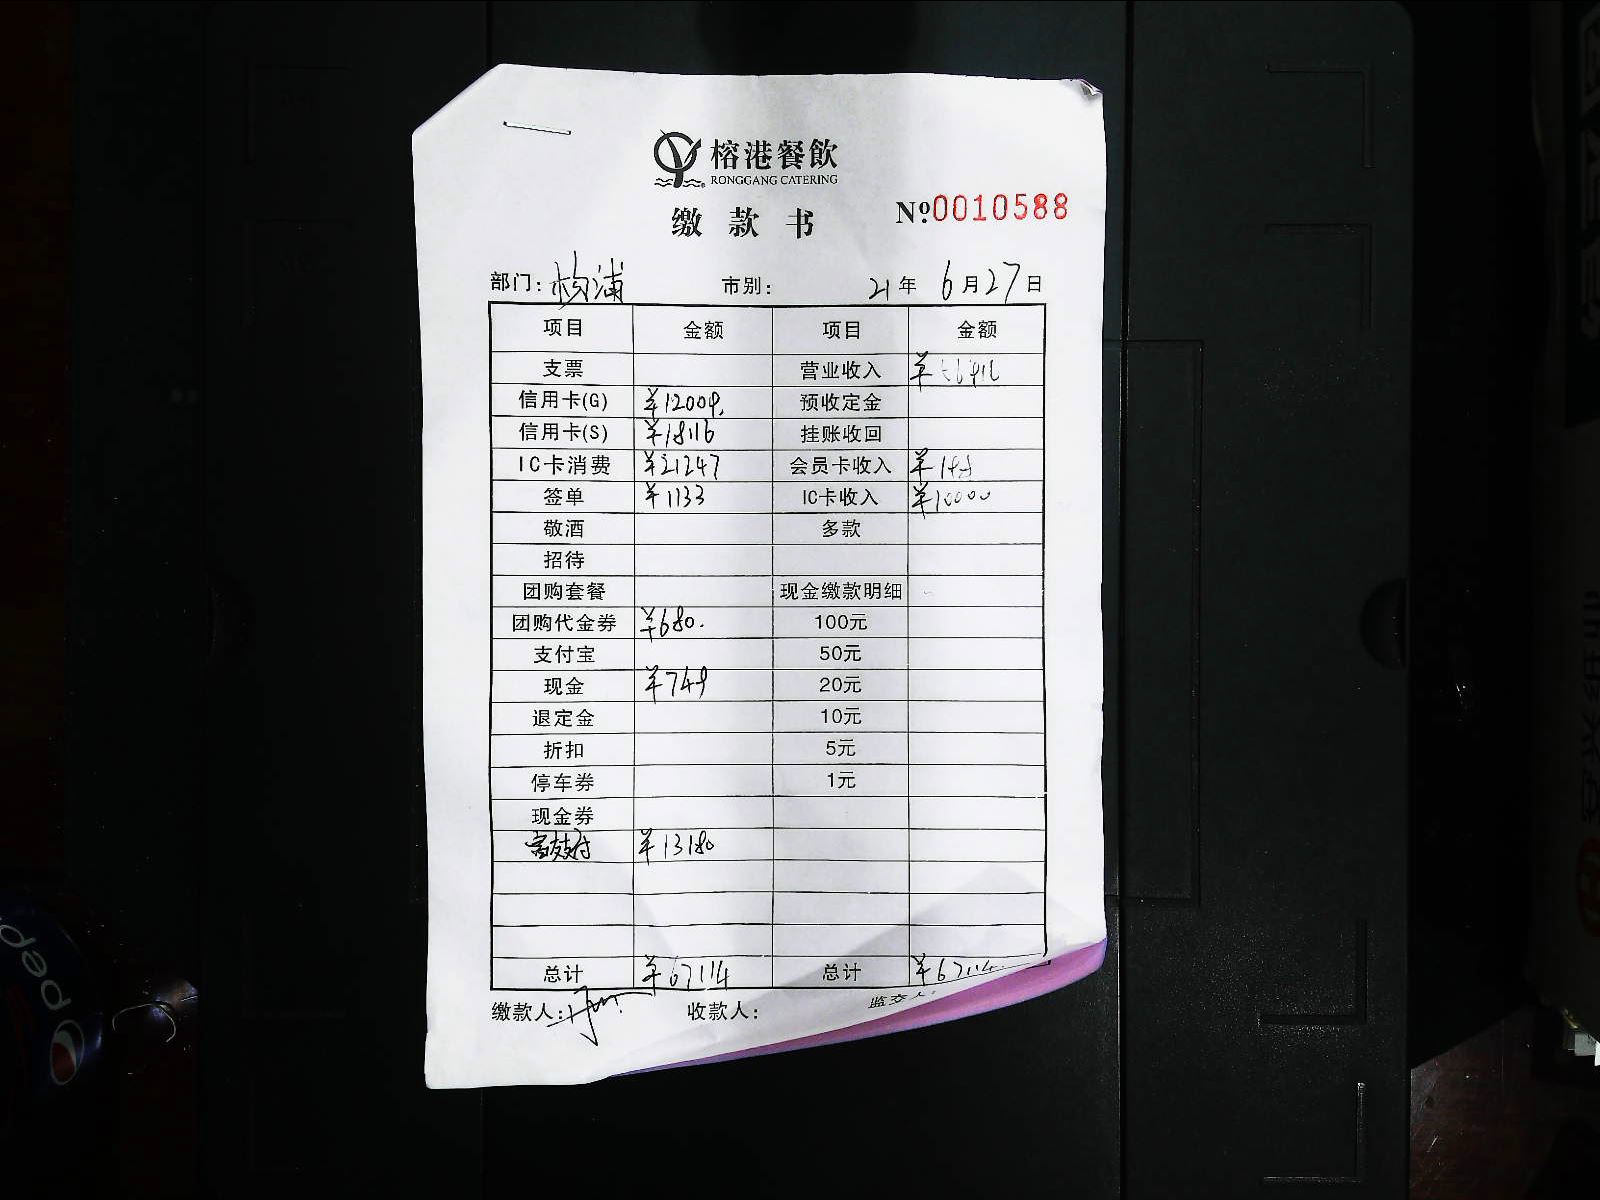 榕港餐飲
RONGGANG CATERING
缴款书 №0010588
部门: 杨浦 市别: 21年 6月27日
项目 金额 项目 金额
支票 营业收入 ¥56916
信用卡(G) ¥12009. 预收定金
信用卡(S) ¥18116 挂账收回
IC卡消费 ¥21247 会员卡收入 ¥198
签单 ¥1133 IC卡收入 ¥10000
敬酒 多款
招待
团购套餐 现金缴款明细
团购代金券 ¥680. 100元
支付宝 50元
现金 ¥749 20元
退定金 10元
折扣 5元
停车券 1元
现金券
富友支付 ¥13180
总计 ¥67114 总计 ¥67114
缴款人: 收款人: 监交人: